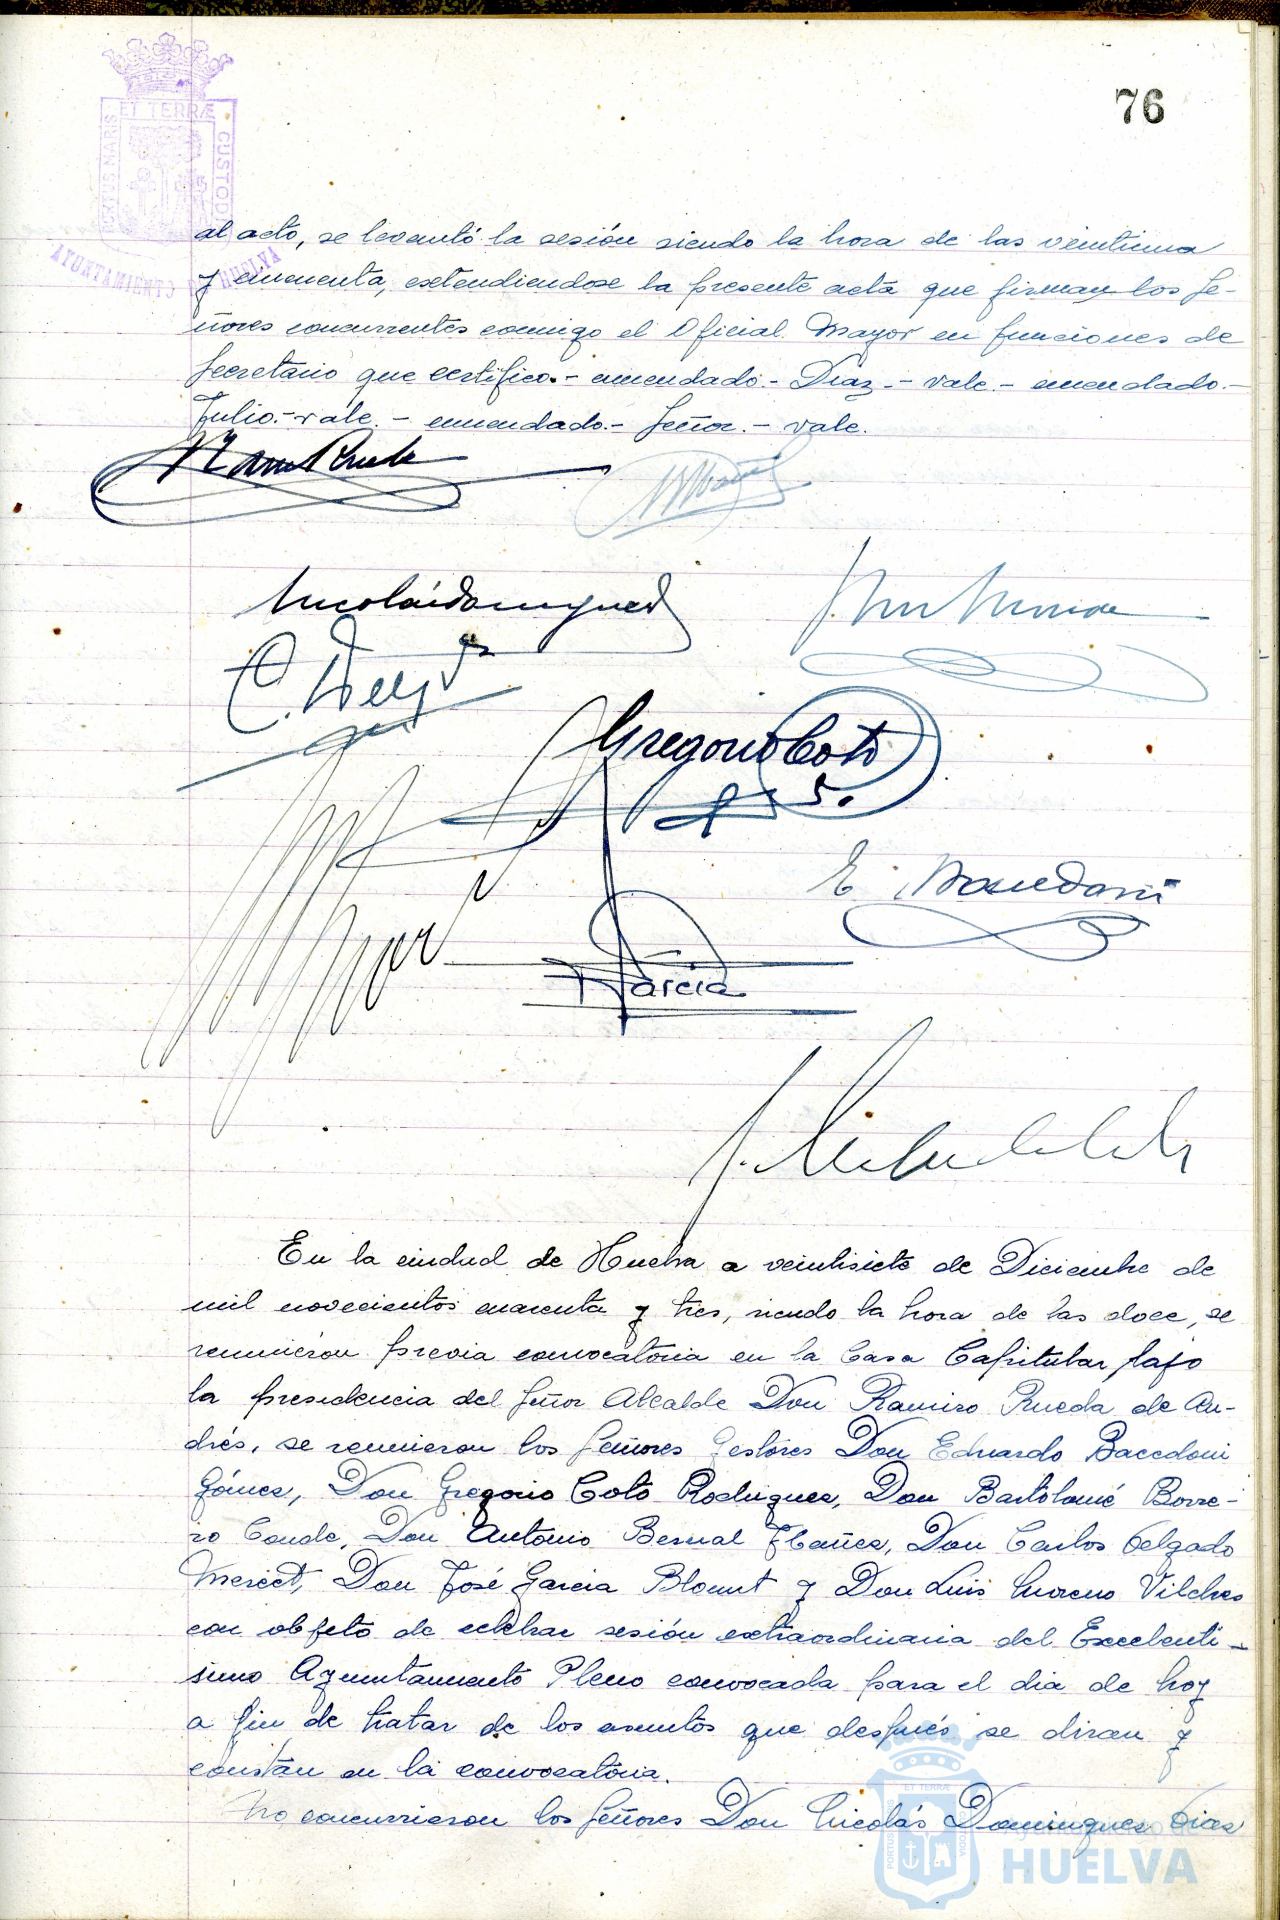 76
PORTUS MARIS ET TERRÆ CUSTODIA
AYUNTAMIENTO DE HUELVA
al acto, se levantó la sesión siendo la hora de las veintiuna
y cincuenta, extendiendose la presente acta que firman los Se-
ñores concurrentes conmigo el Oficial Mayor en funciones de
Secretario que certifico.- enmendado.- Diaz.- vale.- enmendado.-
Julio.- vale.- enmendado.- Señor.- vale.
Nicolás Dominguez
C. Delg
Gregorio Coto
E.
Garcia
En la ciudad de Huelva a veintisiete de Diciembre de
mil novecientos cuarenta y tres, siendo la hora de las doce, se
reunieron previa convocatoria en la Casa Capitular bajo
la presidencia del Señor Alcalde Don Ramiro Rueda de An-
drés, se reunieron los Señores Gestores Don Eduardo Bacedoni
Gómez, Don Gregorio Coto Rodriguez, Don Bartolomé Borre-
ro Conde, Don Antonio Bernal Ibañez, Don Carlos Delgado
Don José Garcia Blount y Don Luis Moreno Vilches
con objeto de celebrar sesión extraordinaria del Excelenti-
simo Ayuntamiento Pleno convocada para el dia de hoy
a fin de tratar de los asuntos que después se diran y
constan en la convocatoria.
No concurrieron los Señores Don Nicolás Dominguez Diaz
PORTUS ET TERRÆ CUSTODIA
Ayuntamiento de
HUELVA